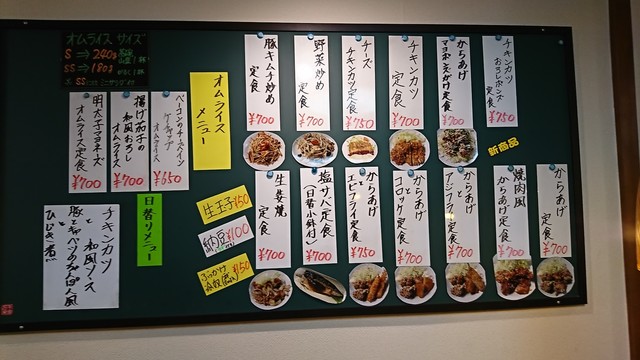 オムライス サイズ
S ⇒ 240g
SS ⇒ 180g
オムライス
メニュー
ベーコンのチーズイン
ケチャップ
オムライス
¥650
揚げ茄子の
和風おろし
オムライス
¥700
明太子マヨネーズ
オムライス定食
¥700
豚キムチ炒め
定食
¥700
野菜炒め
定食
¥700
チーズ
チキンカツ定食
¥750
チキンカツ
定食
¥700
からあげ
マヨポンかけ定食
¥700
チキンカツ
おろしポンズ
定食
¥750
新商品
日替りメニュー
チキンカツ
と 和風ソス
豚とキャベツの
と
ひじき煮
生玉子¥50
納豆¥100
ぶっかけ
¥150
生姜焼
定食
¥700
塩サバ定食
(日替小鉢付)
¥750
からあげ
と
エビフライ定食
¥750
からあげ
と
コロッケ定食
¥700
からあげ
と
アジフライ定食
¥700
焼肉風
からあげ定食
¥700
からあげ
定食
¥700